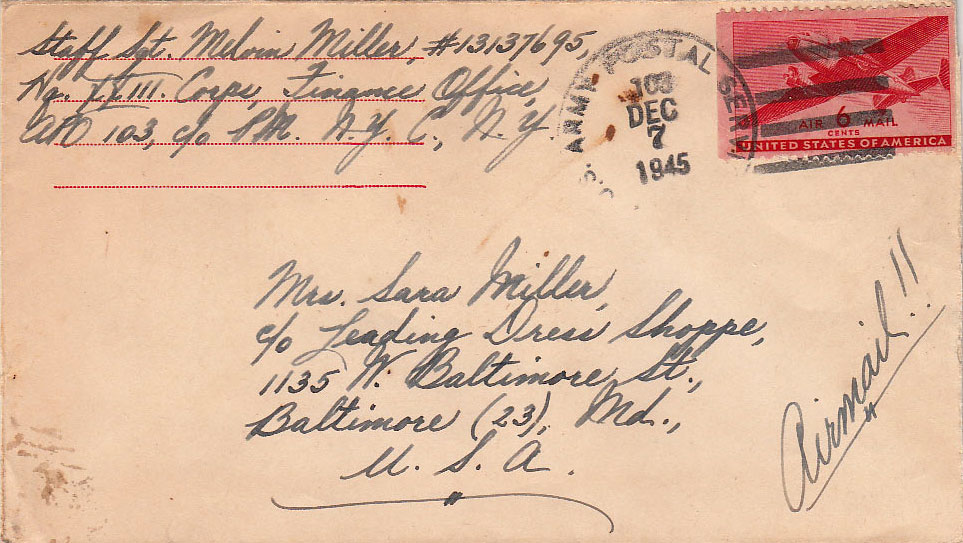 Staff Sgt. Melvin Miller, #13137695,
Hq. XXIII. Corps, Finance Office,
APO 103, c/o P.M. N.Y.C., N.Y.
U.S. ARMY POSTAL SERV
103
DEC
7
1945
AIR 6 MAIL
CENTS
UNITED STATES OF AMERICA
Mrs. Sara Miller,
c/o Leading Dress Shoppe,
1135 W. Baltimore St.,
Baltimore (23), Md.,
U. S. A.
Airmail!!